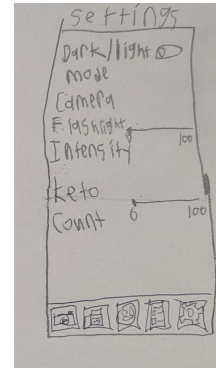 Settings
Dark/light
mode
Camera
Flashlight
Intensity 100
keto
Count 0 100